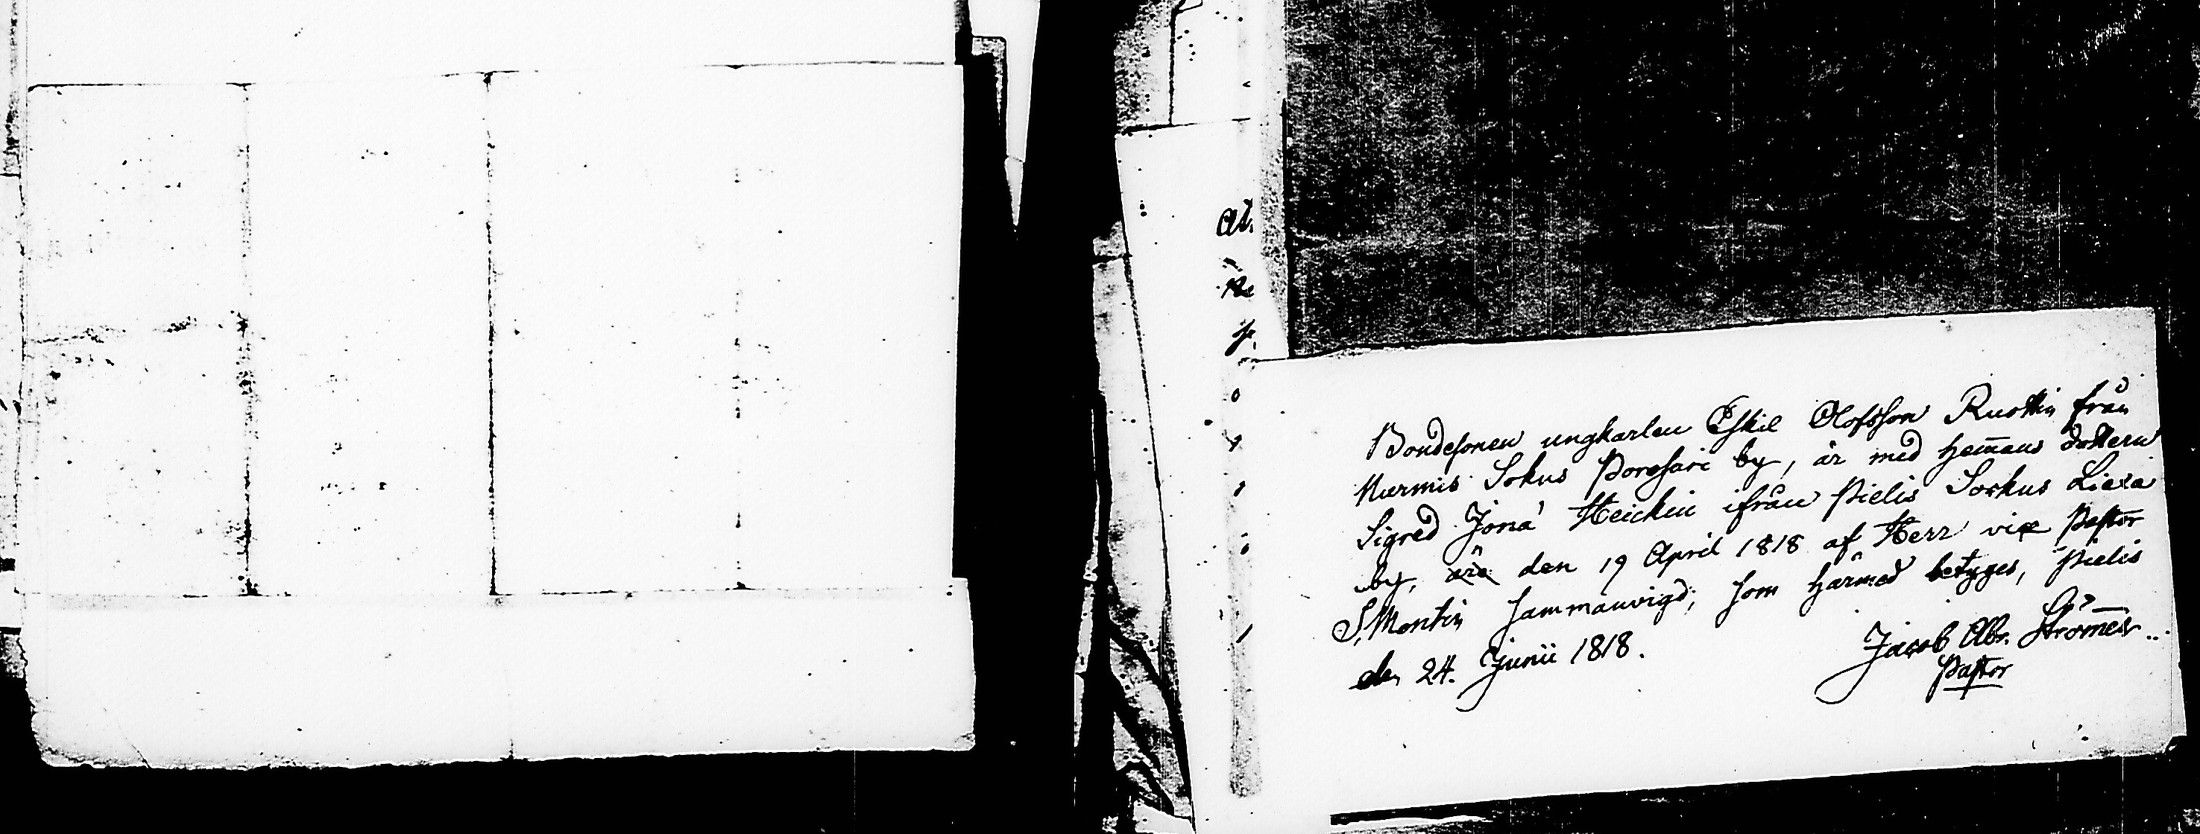 Bondesonen ungkarlen Eskil Olofsson Ruottin från
Nurmis Sokns Porosari by, är med hem̄ans dottern
Sigred Jona Heickin ifrån Pielis Sockns Liexa
by, äro den 19 April 1818 af Herr vice Pastor
S. Montin sammanvigd, som härmed betyges, Pielis
den 24. Junii 1818.
Jacob Abr. Strömer
Pastor